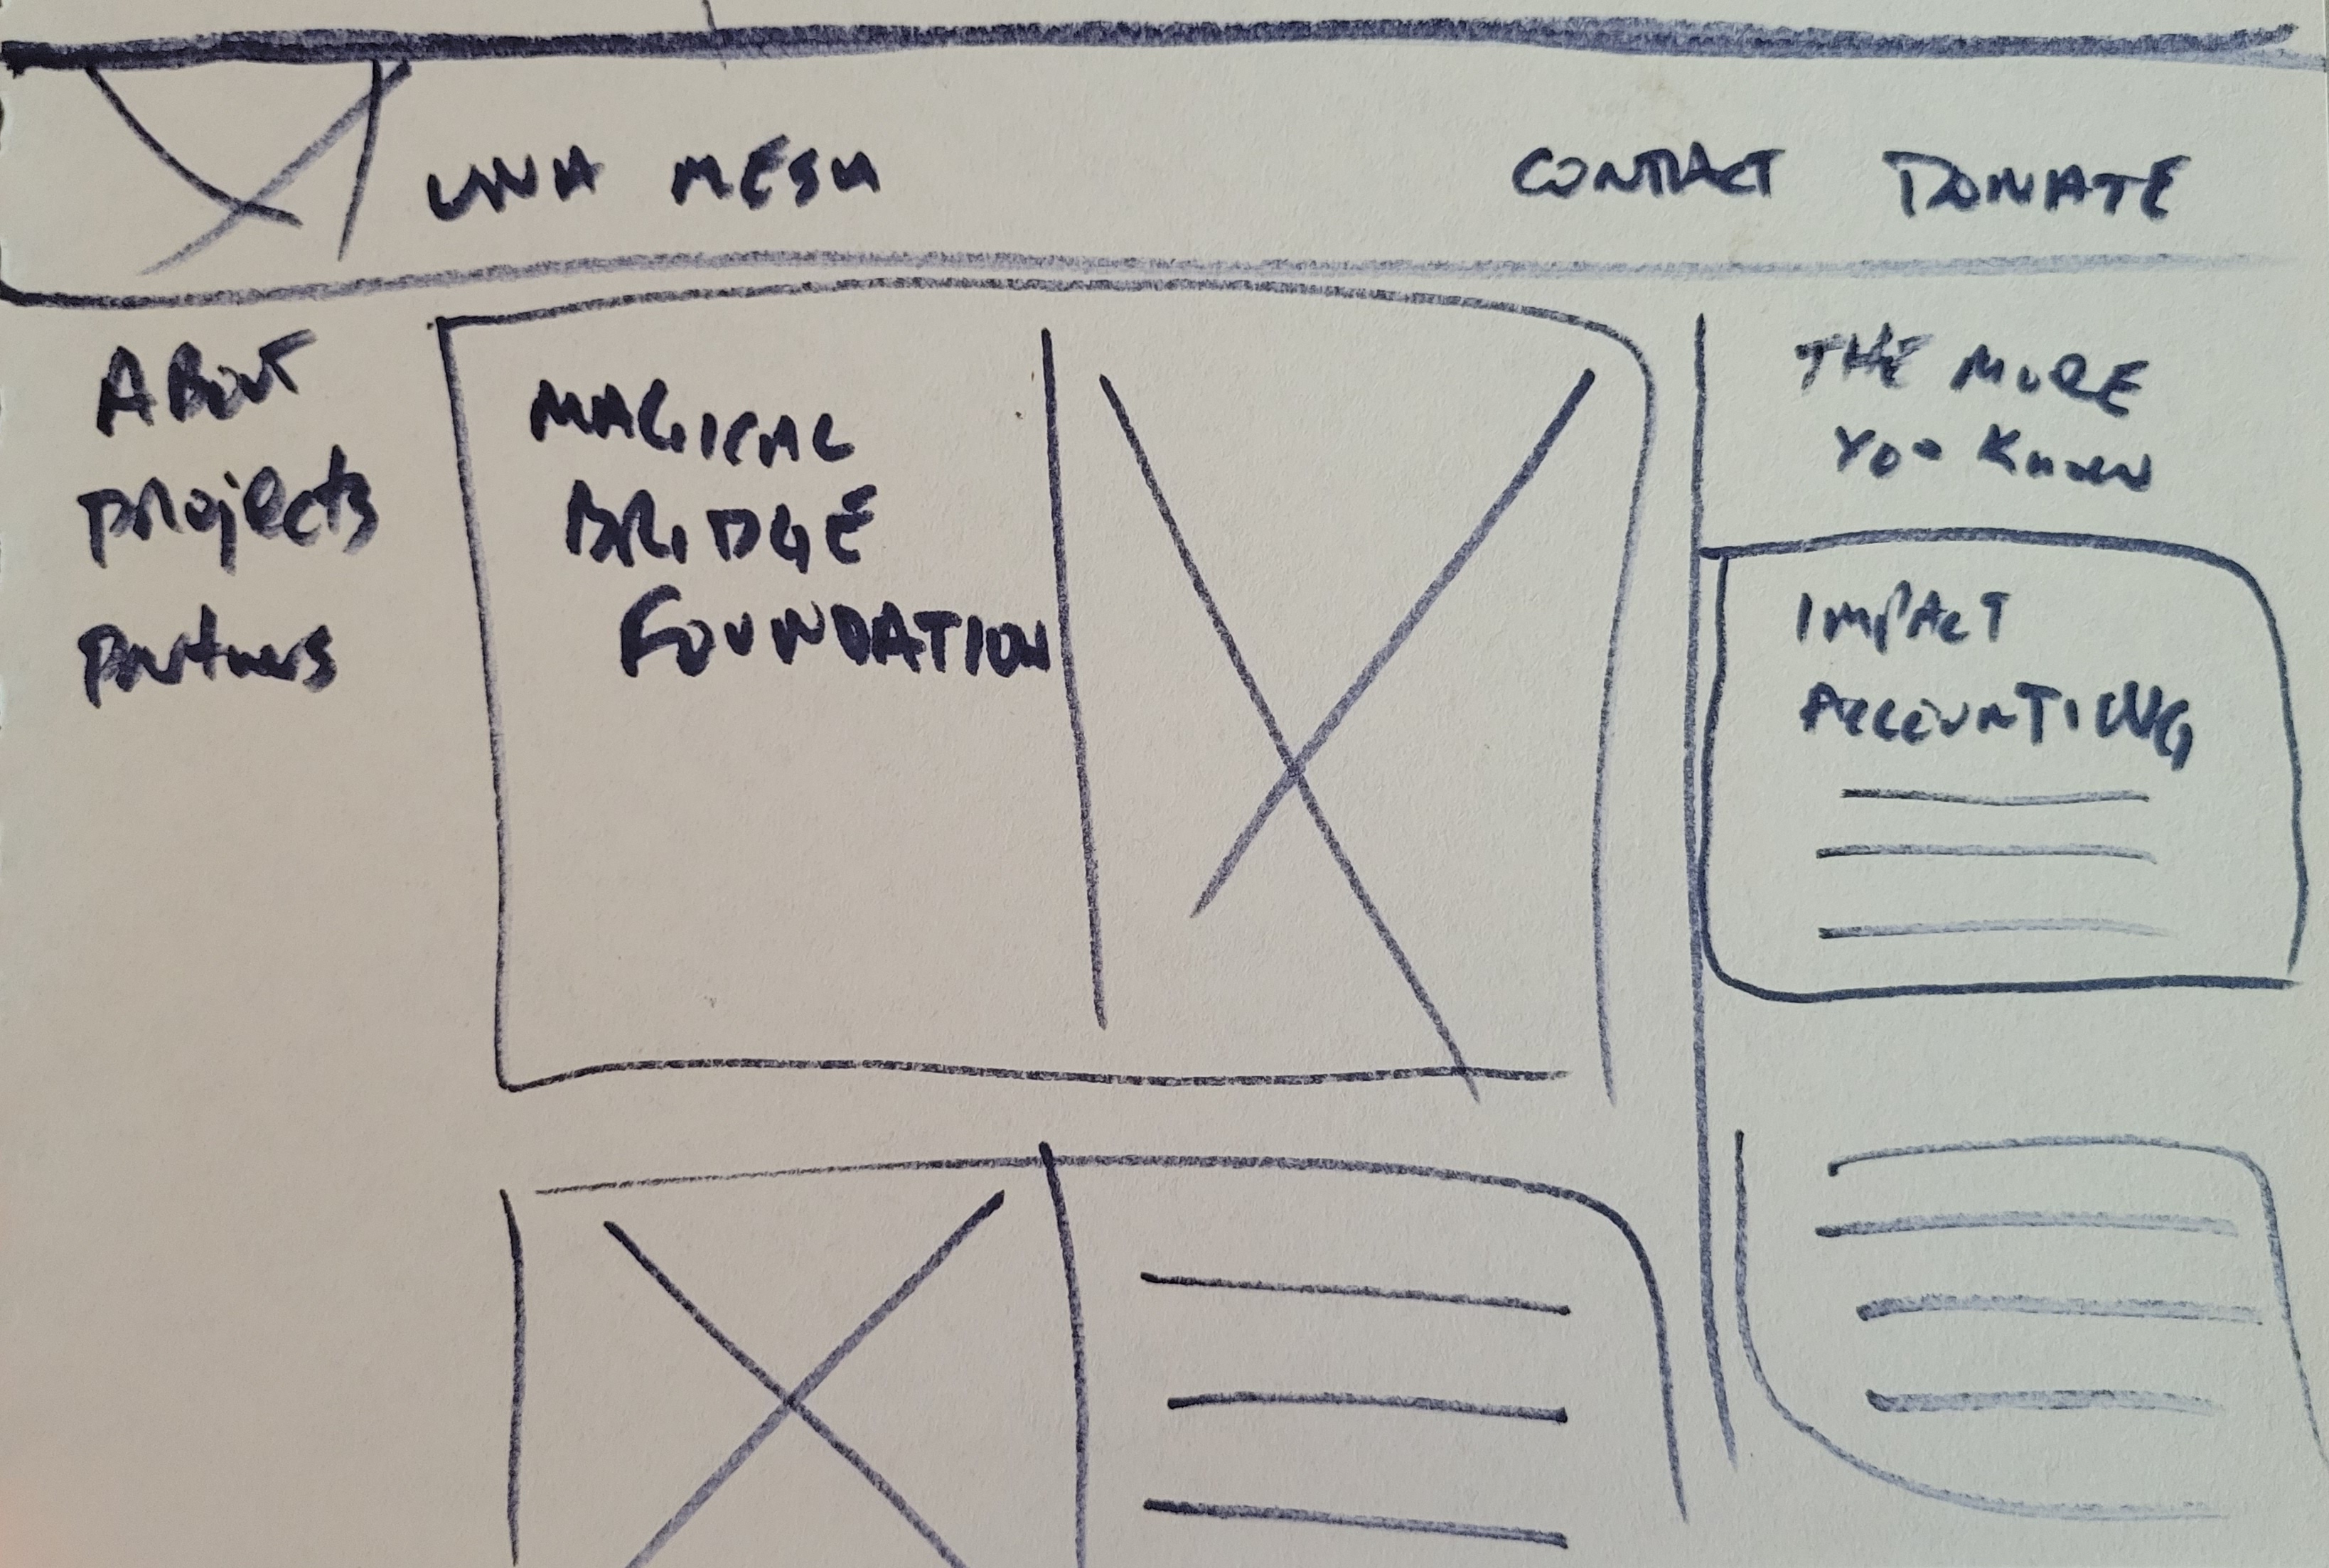 UNA MESH
CONTACT DONATE
ABOUT
Projects
Partners
MAGICAL
BRIDGE
FOUNDATION
THE MORE
YOU KNOW
IMPACT
ACCOUNTING